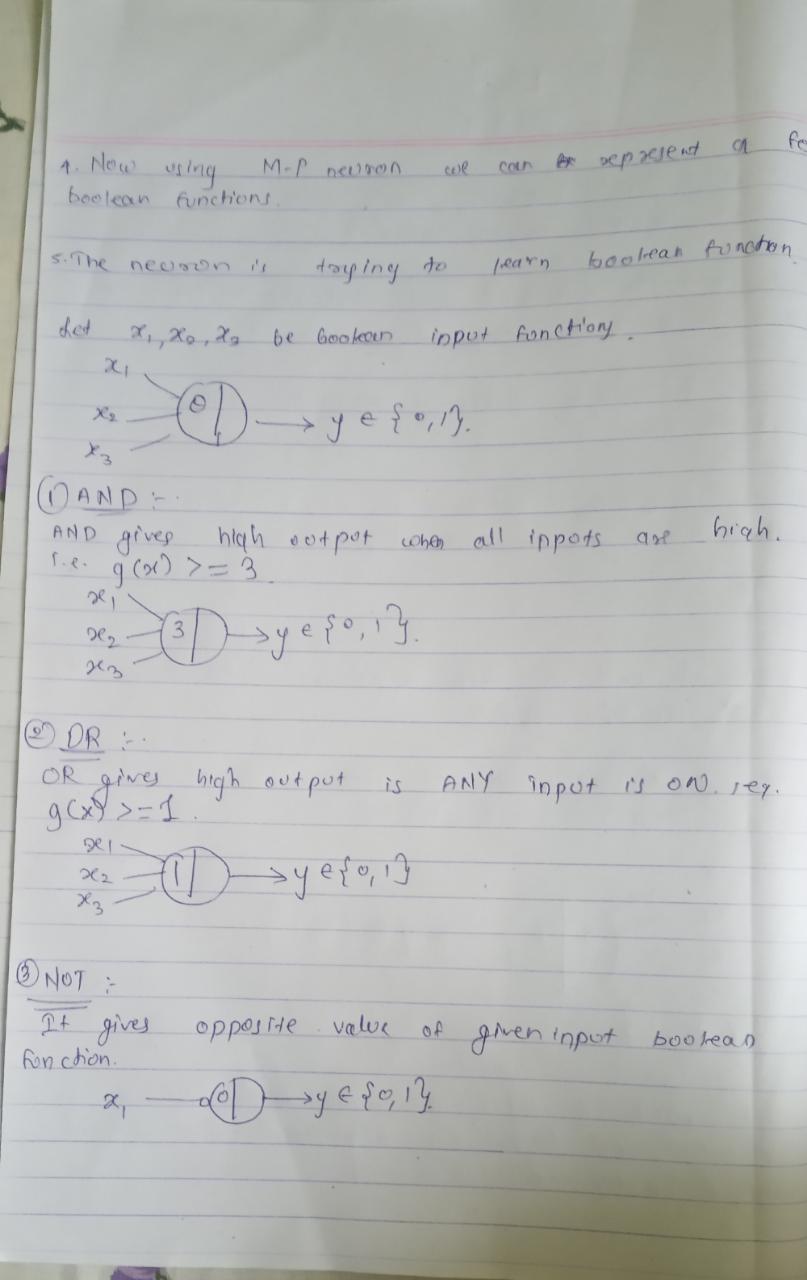 4. Now using M-P neuron we can represent a fe
boolean functions.
5. The neuron is trying to learn boolean function
Let x₁, x₂, x₃ be boolean input functions.
x₁
x₂ θ → y ∈ {0,1}.
x₃
① AND :-
AND gives high output when all inputs are high.
i.e. g(x) >= 3
x₁
x₂ 3 → y ∈ {0,1}.
x₃
② OR :-
OR gives high output is ANY input is ON. ie.
g(x) >= 1.
x₁
x₂ 1 → y ∈ {0,1}
x₃
③ NOT :-
It gives opposite value of given input boolean
function.
x₁ 0 → y ∈ {0,1}.